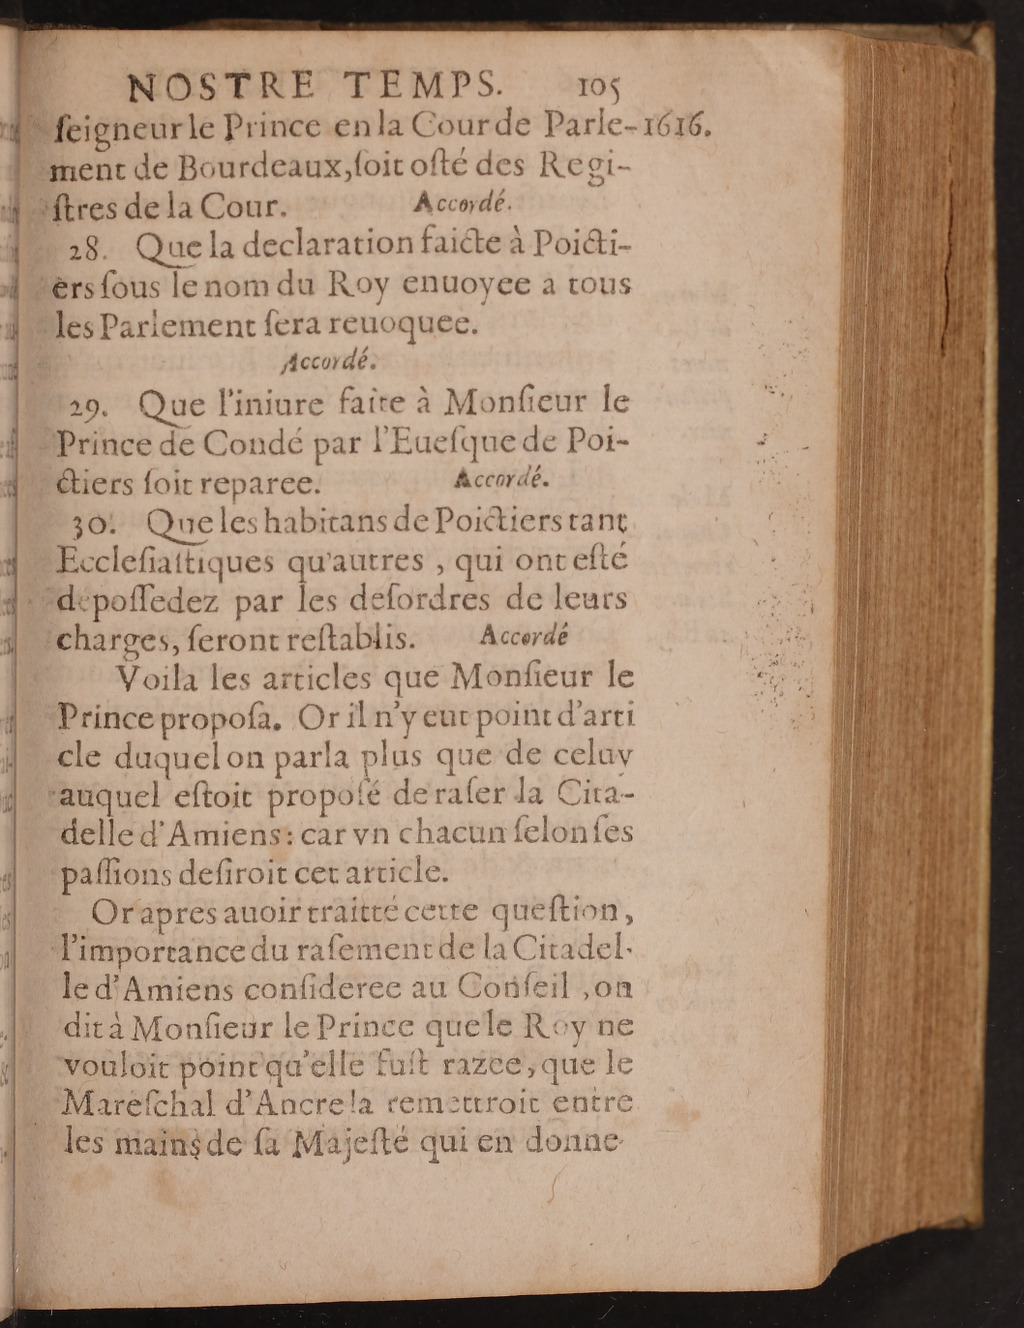 NOSTRE TEMPS. 105
ſeigneur le Prince en la Cour de Parle- 1616.
ment de Bourdeaux, ſoit oſté des Regi-
ſtres de la Cour. Accordé.
28. Que la declaration faicte à Poicti-
ers ſous le nom du Roy enuoyee a tous
les Parlement ſera reuoquee.
Accordé.
29. Que l'iniure faite à Monſieur le
Prince de Condé par l'Eueſque de Poi-
ctiers ſoit reparee. Accordé.
30. Que les habitans de Poictiers tant
Eccleſiaſtiques qu'autres , qui ont eſté
depoſſedez par les deſordres de leurs
charges, ſeront reſtablis. Accordé
Voila les articles que Monſieur le
Prince propoſa. Or il n'y eut point d'arti
cle duquel on parla plus que de celuy
auquel eſtoit propoſé de raſer la Cita-
delle d'Amiens: car vn chacun ſelon ſes
paſſions deſiroit cet article.
Or apres auoir traitté cette queſtion,
l'importance du raſement de la Citadel-
le d'Amiens conſideree au Conſeil ,on
dit à Monſieur le Prince que le Roy ne
vouloit point qu'elle fuſt razee, que le
Mareſchal d'Ancre la remettroit entre
les mains de ſa Majeſté qui en donne